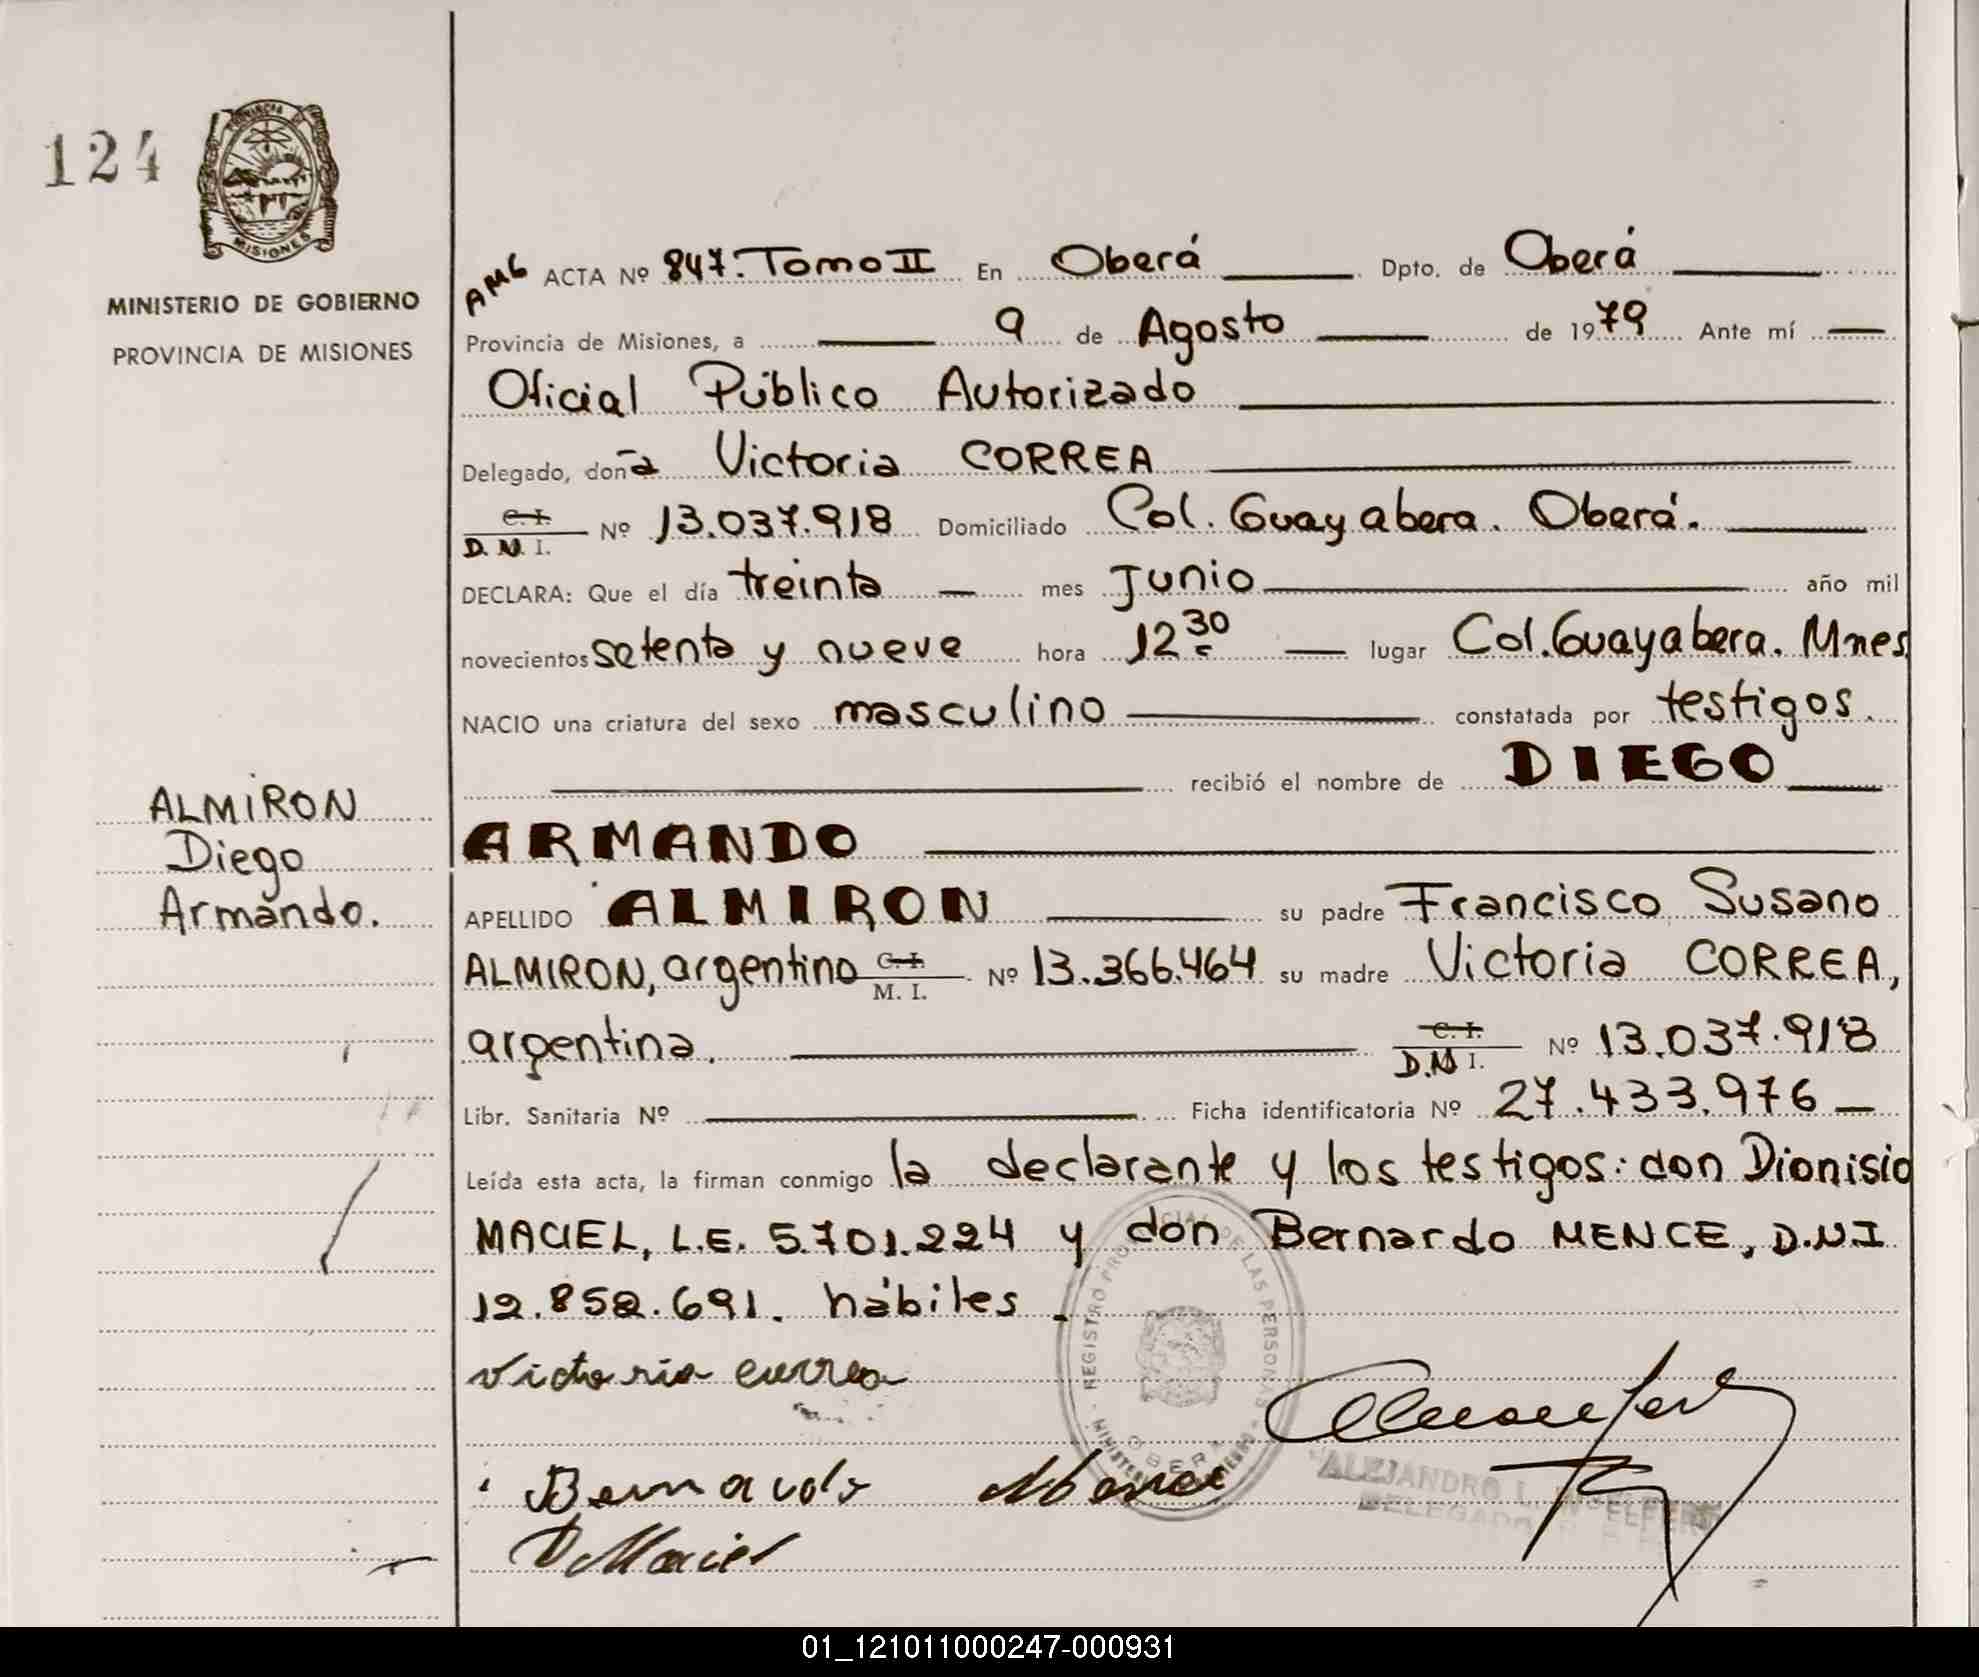 124
PROVINCIA DE
MISIONES
MINISTERIO DE GOBIERNO
PROVINCIA DE MISIONES
AMG ACTA Nº 847. Tomo II En Oberá Dpto. de Oberá
Provincia de Misiones, a 9 de Agosto de 1979 Ante mí
Oficial Público Autorizado
Delegado, doña Victoria CORREA
C. I.
D. N. I. Nº 13.037.918 Domiciliado Col. Guayabera. Oberá.
DECLARA: Que el día treinta mes Junio año mil
novecientos setenta y nueve hora 12 30 lugar Col. Guayabera. Mnes
NACIO una criatura del sexo masculino constatada por testigos.
recibió el nombre de DIEGO
ARMANDO
APELLIDO ALMIRON su padre Francisco Susano
ALMIRON, argentino C. I. M. I. Nº 13.366.464 su madre Victoria CORREA,
argentina. C. I. D.N I. Nº 13.037.918
Libr. Sanitaria Nº Ficha identificatoria Nº 27.433.976
Leída esta acta, la firman conmigo la declarante y los testigos: don Dionisio
MACIEL, L.E. 5.701.224 y don Bernardo MENCE, D.N.I
12.852.691. hábiles.
ALMIRON
Diego
Armando.
victoria currea
Bernardo Mence
D Maciel
REGISTRO PROVINCIAL DE LAS PERSONAS
OBERA
ALEJANDRO L.
DELEGADO
01_121011000247-000931